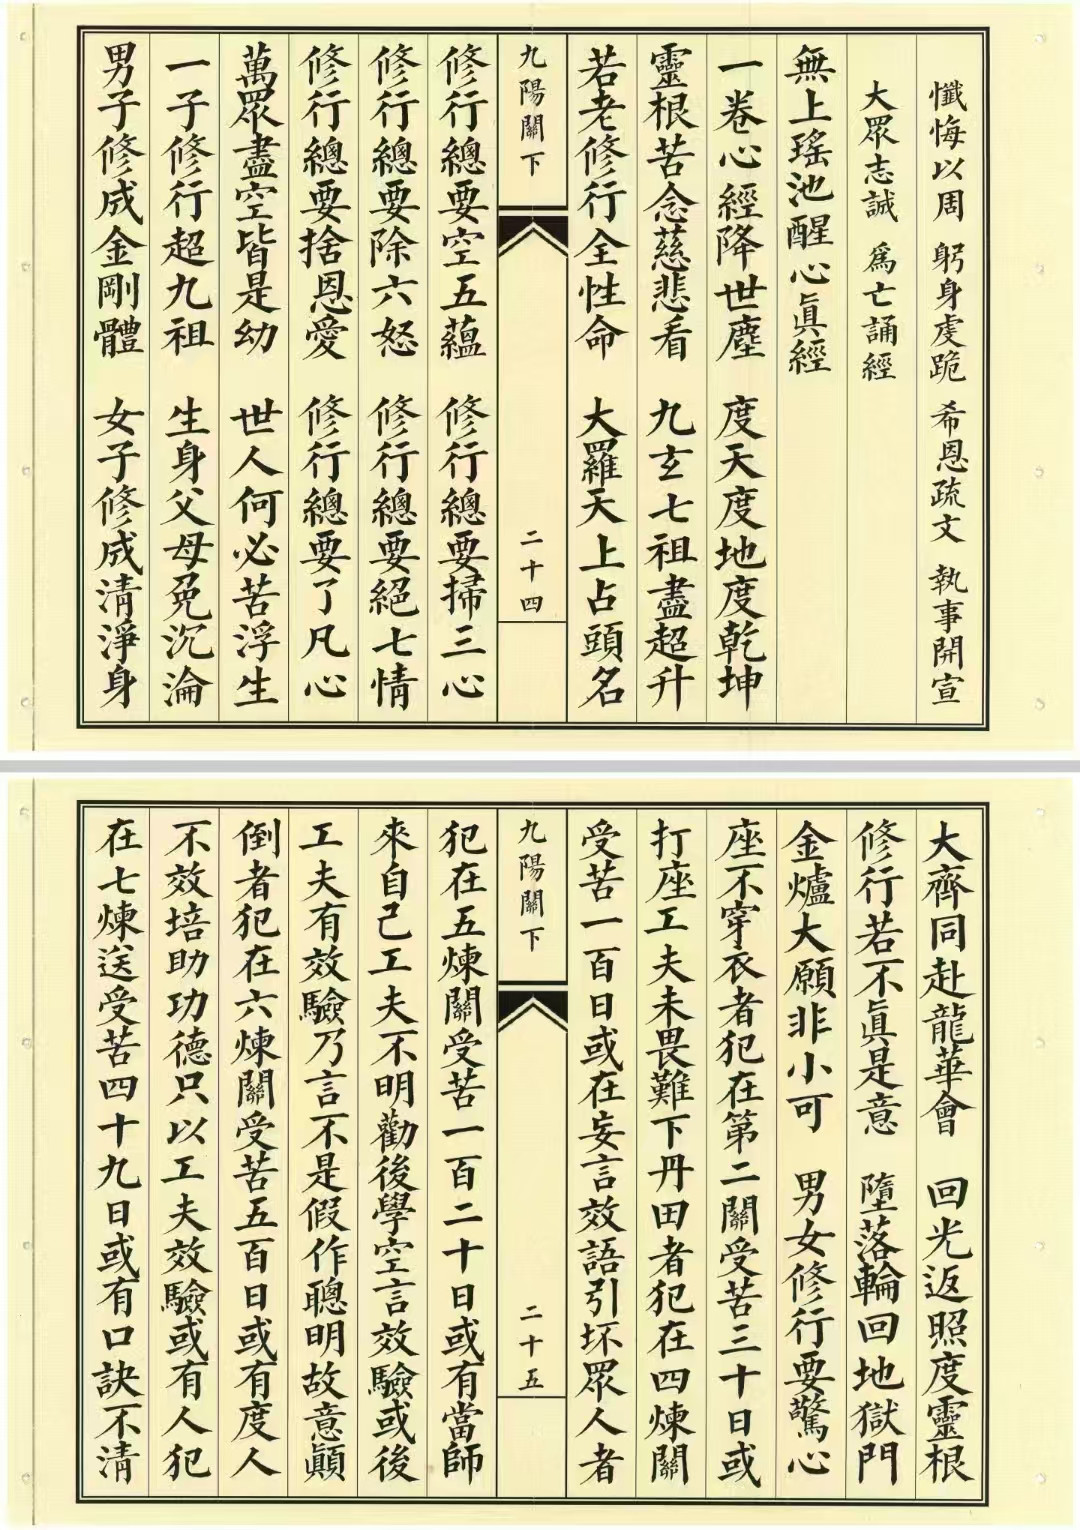 懺悔以周 躬身虔跪 希恩疏文 執事開宣
大眾志誠 為亡誦經
無上瑤池醒心眞經
一卷心經降世塵 度天度地度乾坤
靈根苦念慈悲看 九玄七祖盡超升
若老修行全性命 大羅天上占頭名
九陽關下 二十四
修行總要空五蘊 修行總要掃三心
修行總要除六怒 修行總要絕七情
修行總要捨恩愛 修行總要了凡心
萬眾盡空皆是幼 世人何必苦浮生
一子修行超九祖 生身父母免沉淪
男子修成金剛體 女子修成清淨身
大齊同赴龍華會 回光返照度靈根
修行若不眞是意 墮落輪回地獄門
金爐大願非小可 男女修行要驚心
座不穿衣者犯在第二關受苦三十日或
打座工夫未畏難下丹田者犯在四煉關
受苦一百日或在妄言效語引坏眾人者
九陽關下 二十五
犯在五煉關受苦一百二十日或有當師
來自己工夫不明勸後學空言效驗或後
工夫有效驗乃言不是假作聰明故意顛
倒者犯在六煉關受苦五百日或有度人
不效培助功德只以工夫效驗或有人犯
在七煉送受苦四十九日或有口訣不清